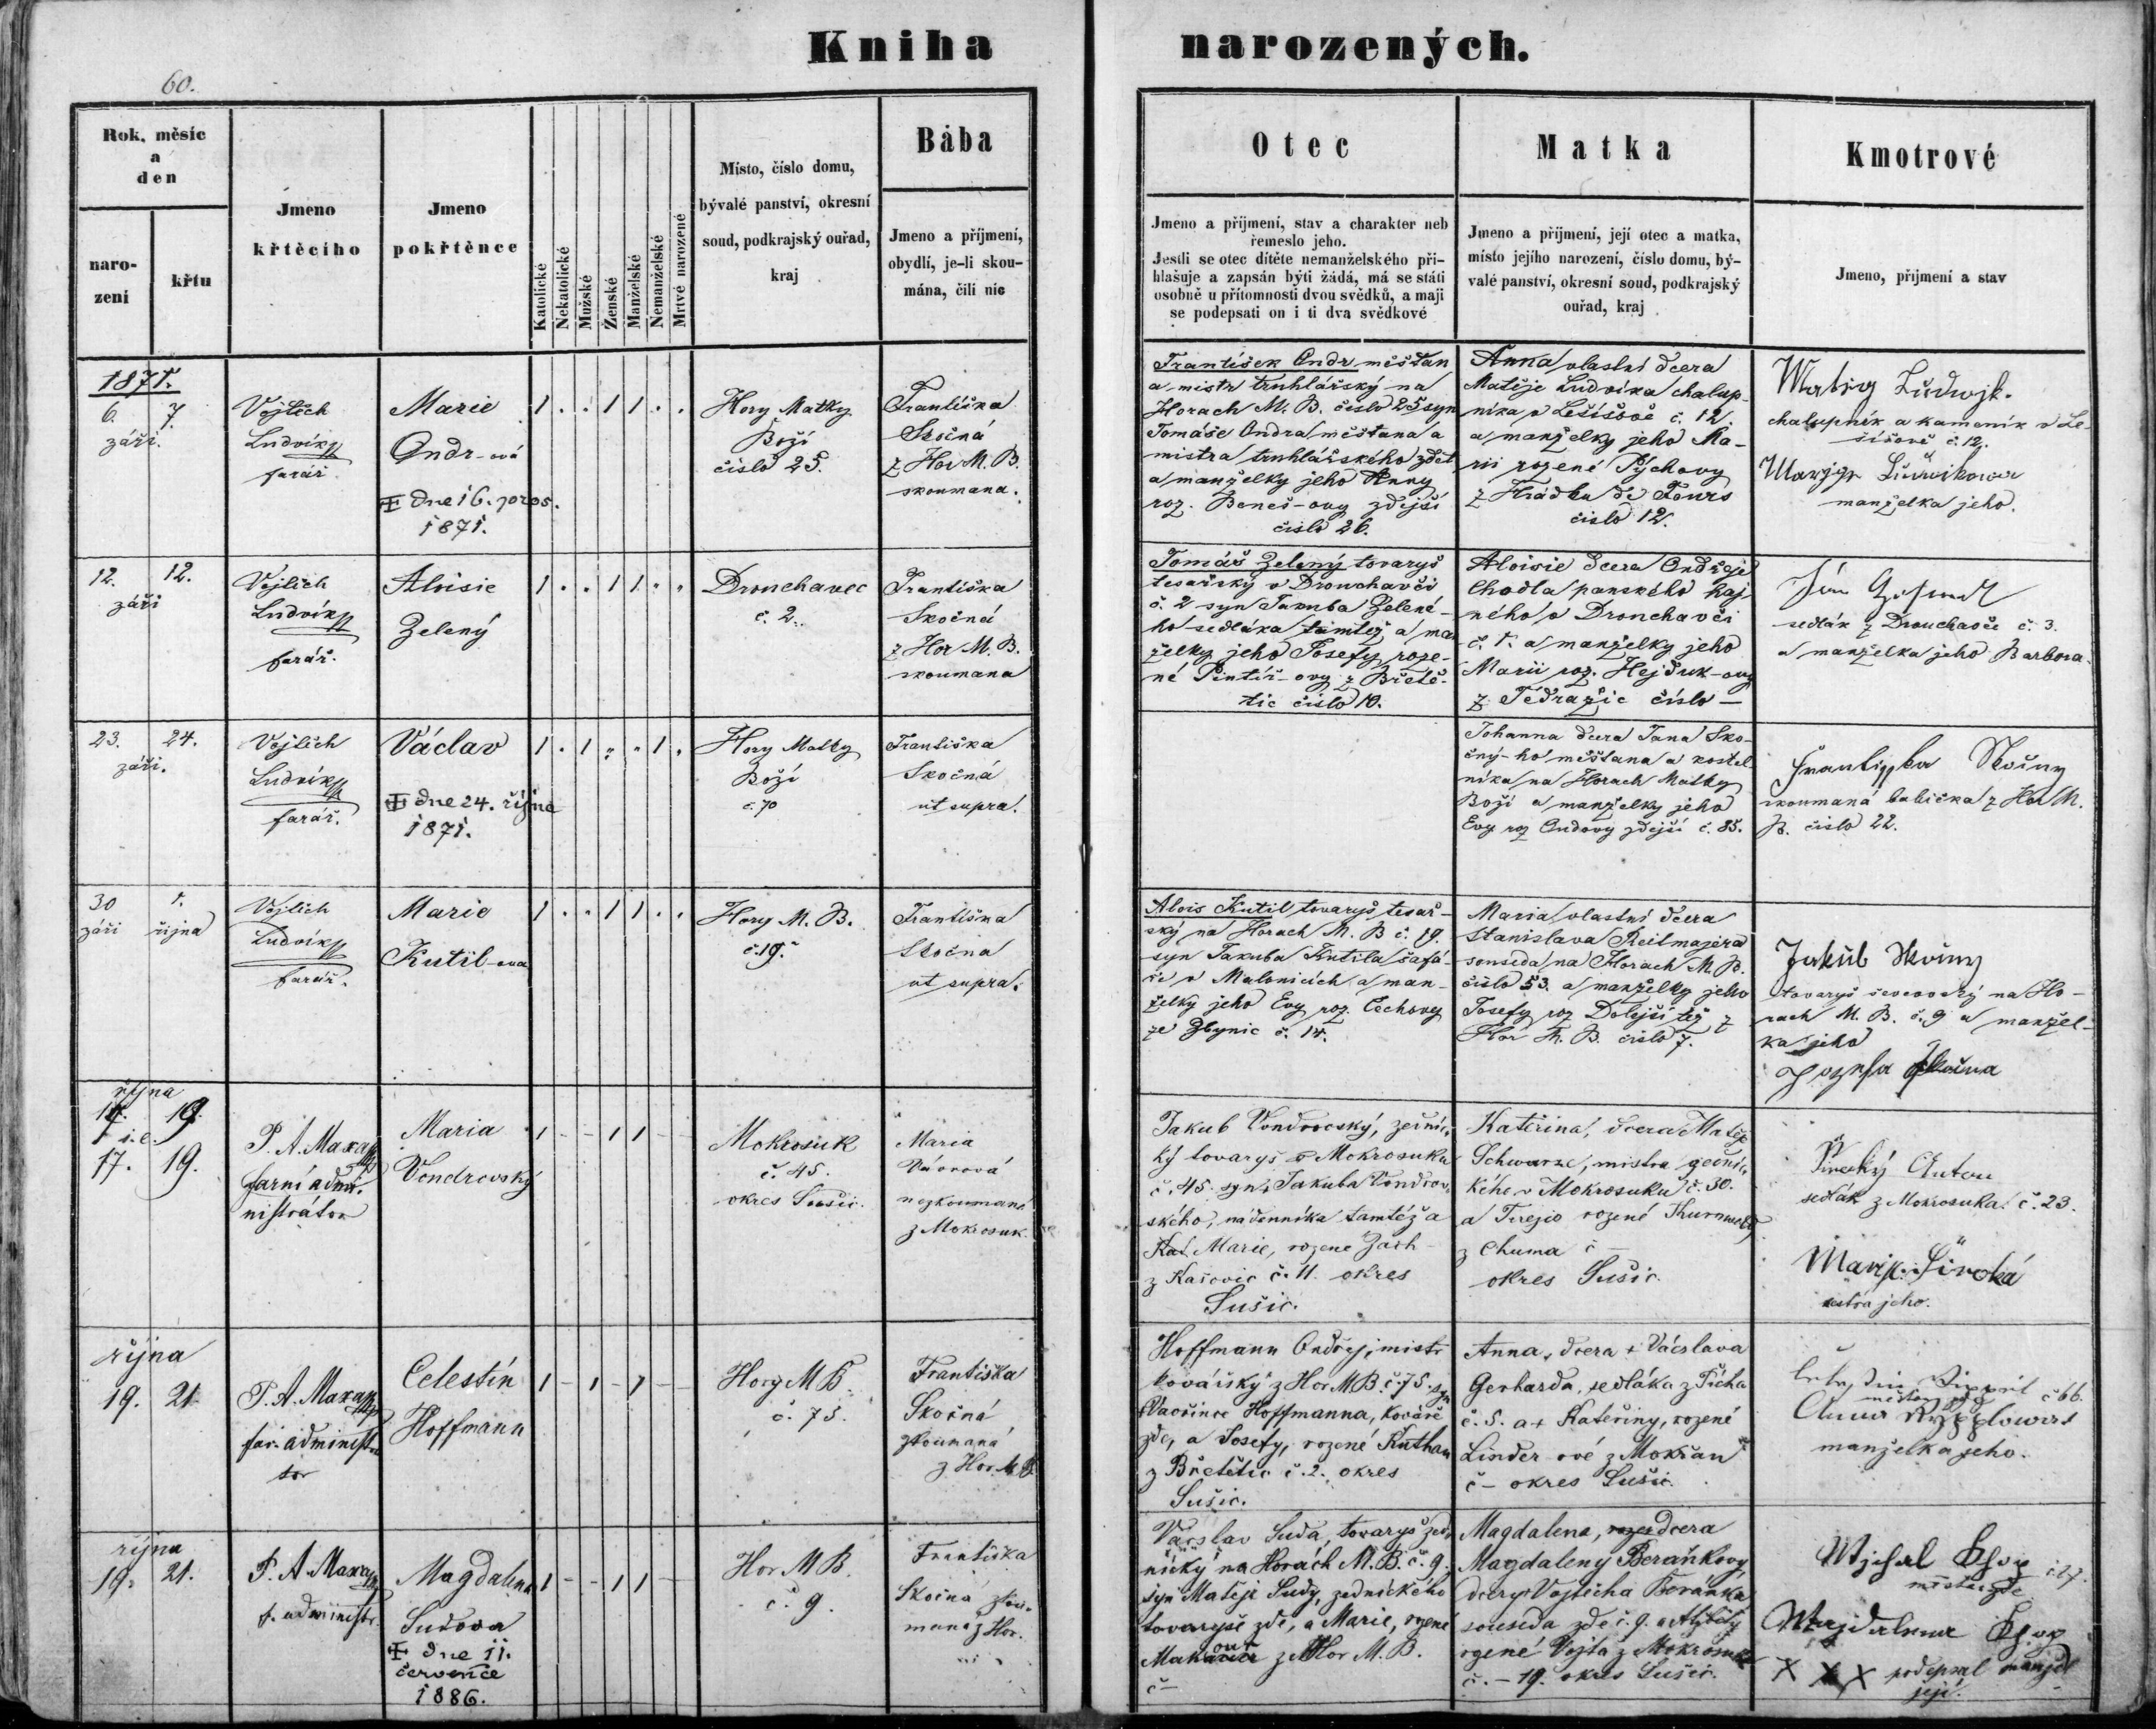 Kniha narozených.
60.
Rok, měsíc
a
den
naro-
zení
křtu
Jmeno
křtěcího
Jmeno
pokřtěnce
Katolické
Nekatolické
Mužské
Ženské
Manželské
Nemanželské
Mrtvé narozené
Místo, číslo domu,
bývalé panství, okresní
soud, podkrajský ouřad,
kraj
Bába
Jmeno a příjmení,
obydlí, je-li skou-
mána, čili nic
Otec
Jmeno a příjmení, stav a charakter neb
řemeslo jeho.
Jestli se otec dítěte nemanželského při-
hlašuje a zapsán býti žádá, má se státi
osobně u přítomnosti dvou svědků, a mají
se podepsati on i ti dva svědkové
Matka
Jmeno a příjmení, její otec a matka,
místo jejího narození, číslo domu, bý-
valé panství, okresní soud, podkrajský
ouřad, kraj
Kmotrové
Jmeno, příjmení a stav
1871.
6. 7.
září.
Vojtěch
Ludvík
farář
Marie
Ondr-ová
dne 16. pros.
1871.
1 . . 1 1 . .
Hory Matky
Boží
číslo 25.
Františka
Skočná
z Hor M. B.
skoumana.
František Ondr měšťan
a mistr truhlářský na
Horach M. B. číslo 25 syn
Tomáše Ondra měšťana a
mistra truhlářského zdet
a manželky jeho Anny
roz. Beneš-ovy zdejší
číslo 26.
Anna vlastní dcera
Matěje Ludvíka chalup-
níka v Lešišově č. 12.
a manželky jeho Ma-
rii rozené Pýchovy
z Hrádku de Fours
číslo 12.
chalupník a kameník v Le-
šišově č. 12.
manželka jeho.
12. 12.
září
Vojtěch
Ludvík
farář.
Aloisie
Zelený
1 . . 1 1 . .
Drouchavec
č. 2.
Františka
Skočná
z Hor M. B.
skoumana
Tomáš Zelený tovaryš
tesařský v Drouchavči
č. 2 syn Jakuba Zelené-
ho sedláka tamtéž a man
želky jeho Josefy roze-
né Pintíř-ovy z Břetě-
tic číslo 10.
Aloisie dcera Ondřeje
Chodla panského haj
ného v Drouchavči
č. 1. a manželky jeho
Marii roz. Hejduk-ovy
z Tedražic číslo —
sedlák z Drouchavče č. 3.
a manželka jeho Barbora.
23. 24.
září.
Vojtěch
Ludvík
farář.
Václav
dne 24. října
1871.
1 . 1 . . 1 .
Hory Matky
Boží
č. 70
Františka
Skočná
ut supra.
Johanna dcera Jana Sko-
čný-ho měšťana a kostel
níka na Horach Matky
Boží a manželky jeho
Evy roz Ondovy zdejší č. 85.
Františka Skočny
skoumaná babička z Hor M.
B. číslo 22.
30 1.
září října
Vojtěch
Ludvík
farář.
Marie
Kutil-ova
1 . . 1 1 . .
Hory M. B.
č. 19.
Františka
Skočna
ut supra.
Alois Kutil tovaryš tesař-
ský na Horach M. B č. 19.
syn Jakuba Kutila šafá-
ře v Malonicích a man-
želky jeho Evy roz. Čechovy
ze Zbynic č. 14.
Maria vlastní dcera
Stanislava Reitmajera
souseda na Horach M. B.
číslo 53. a manželky jeho
Josefy roz Dolejší též z
Hor M. B. číslo 7.
Jakub Skočny
tovaryš ševcovský na Ho-
rach M. B. č. 9 a manžel-
ka jeho
října
19.
i. e.
17. 19.
P. A. Maxa
farní admi-
nistrátor
Maria
Vondrovský
1 - - 1 1 - -
Mokrosuk
č. 45.
okres Sušic.
Maria
Vávrová
nezkoumaná
z Mokrosuk.
Jakub Vondrovský, zední-
ký tovaryš v Mokrosuku
č. 45. syn Jakuba Vondrov-
ského, nádenníka tamtéž a
Marie, rozené Zach
z Kašovic č. 11. okres
Sušic.
Kateřina, dcera Matěje
Schwarze, mistra zední-
kého v Mokrosuku č. 30.
a Terejie rozené
z Chuma č —
okres Sušic.
Široký Anton
sedlák z Mokrosuka č. 23.
Marije Široká
sestra jeho.
října
19. 21.
P. A. Maxa
far. administra
tor
Celestin
Hoffmann
1 - 1 - 1 - -
Hory M B
č. 75.
Františka
Skočná
zkoumaná
z Hor M B
Hoffmann Ondřej, mistr
kovářský z Hor M B. č. 75. syn
Vavřince Hoffmanna, kováře
zde, a Josefy, rozené Kuthan
z Břetětic č. 2. okres
Sušic.
Anna, dcera + Václava
Gerharda, sedláka z Ticha
č. 5. a + Kateřiny, rozené
Linder-ové z Mokřan
č - okres Sušic.
č 66.
Anna
manželka jeho.
října
19. 21.
P. A. Maxa
f. administr.
Magdalena
Sudova
dne 11.
července
1886.
1 - - 1 1 - -
Hor M B.
č. 9.
Františka
Skočná zkou-
maná z Hor.
Václav Suda, tovaryš zed-
nický na Horách M. B. č. 9.
syn Matěje Sudy, zednického
tovaryše zde, a Marie, rozené
z Hor M. B.
č —
Magdalena, dcera
Magdaleny Beránkovy,
dcery Vojtěcha Beránka
souseda zde č. 9. a Alžběty
rozené Vojta z Mokrosuk
č. - 19. okres Sušic.
měšťan zde
Magdalena
X X X podepsal manžel
její.